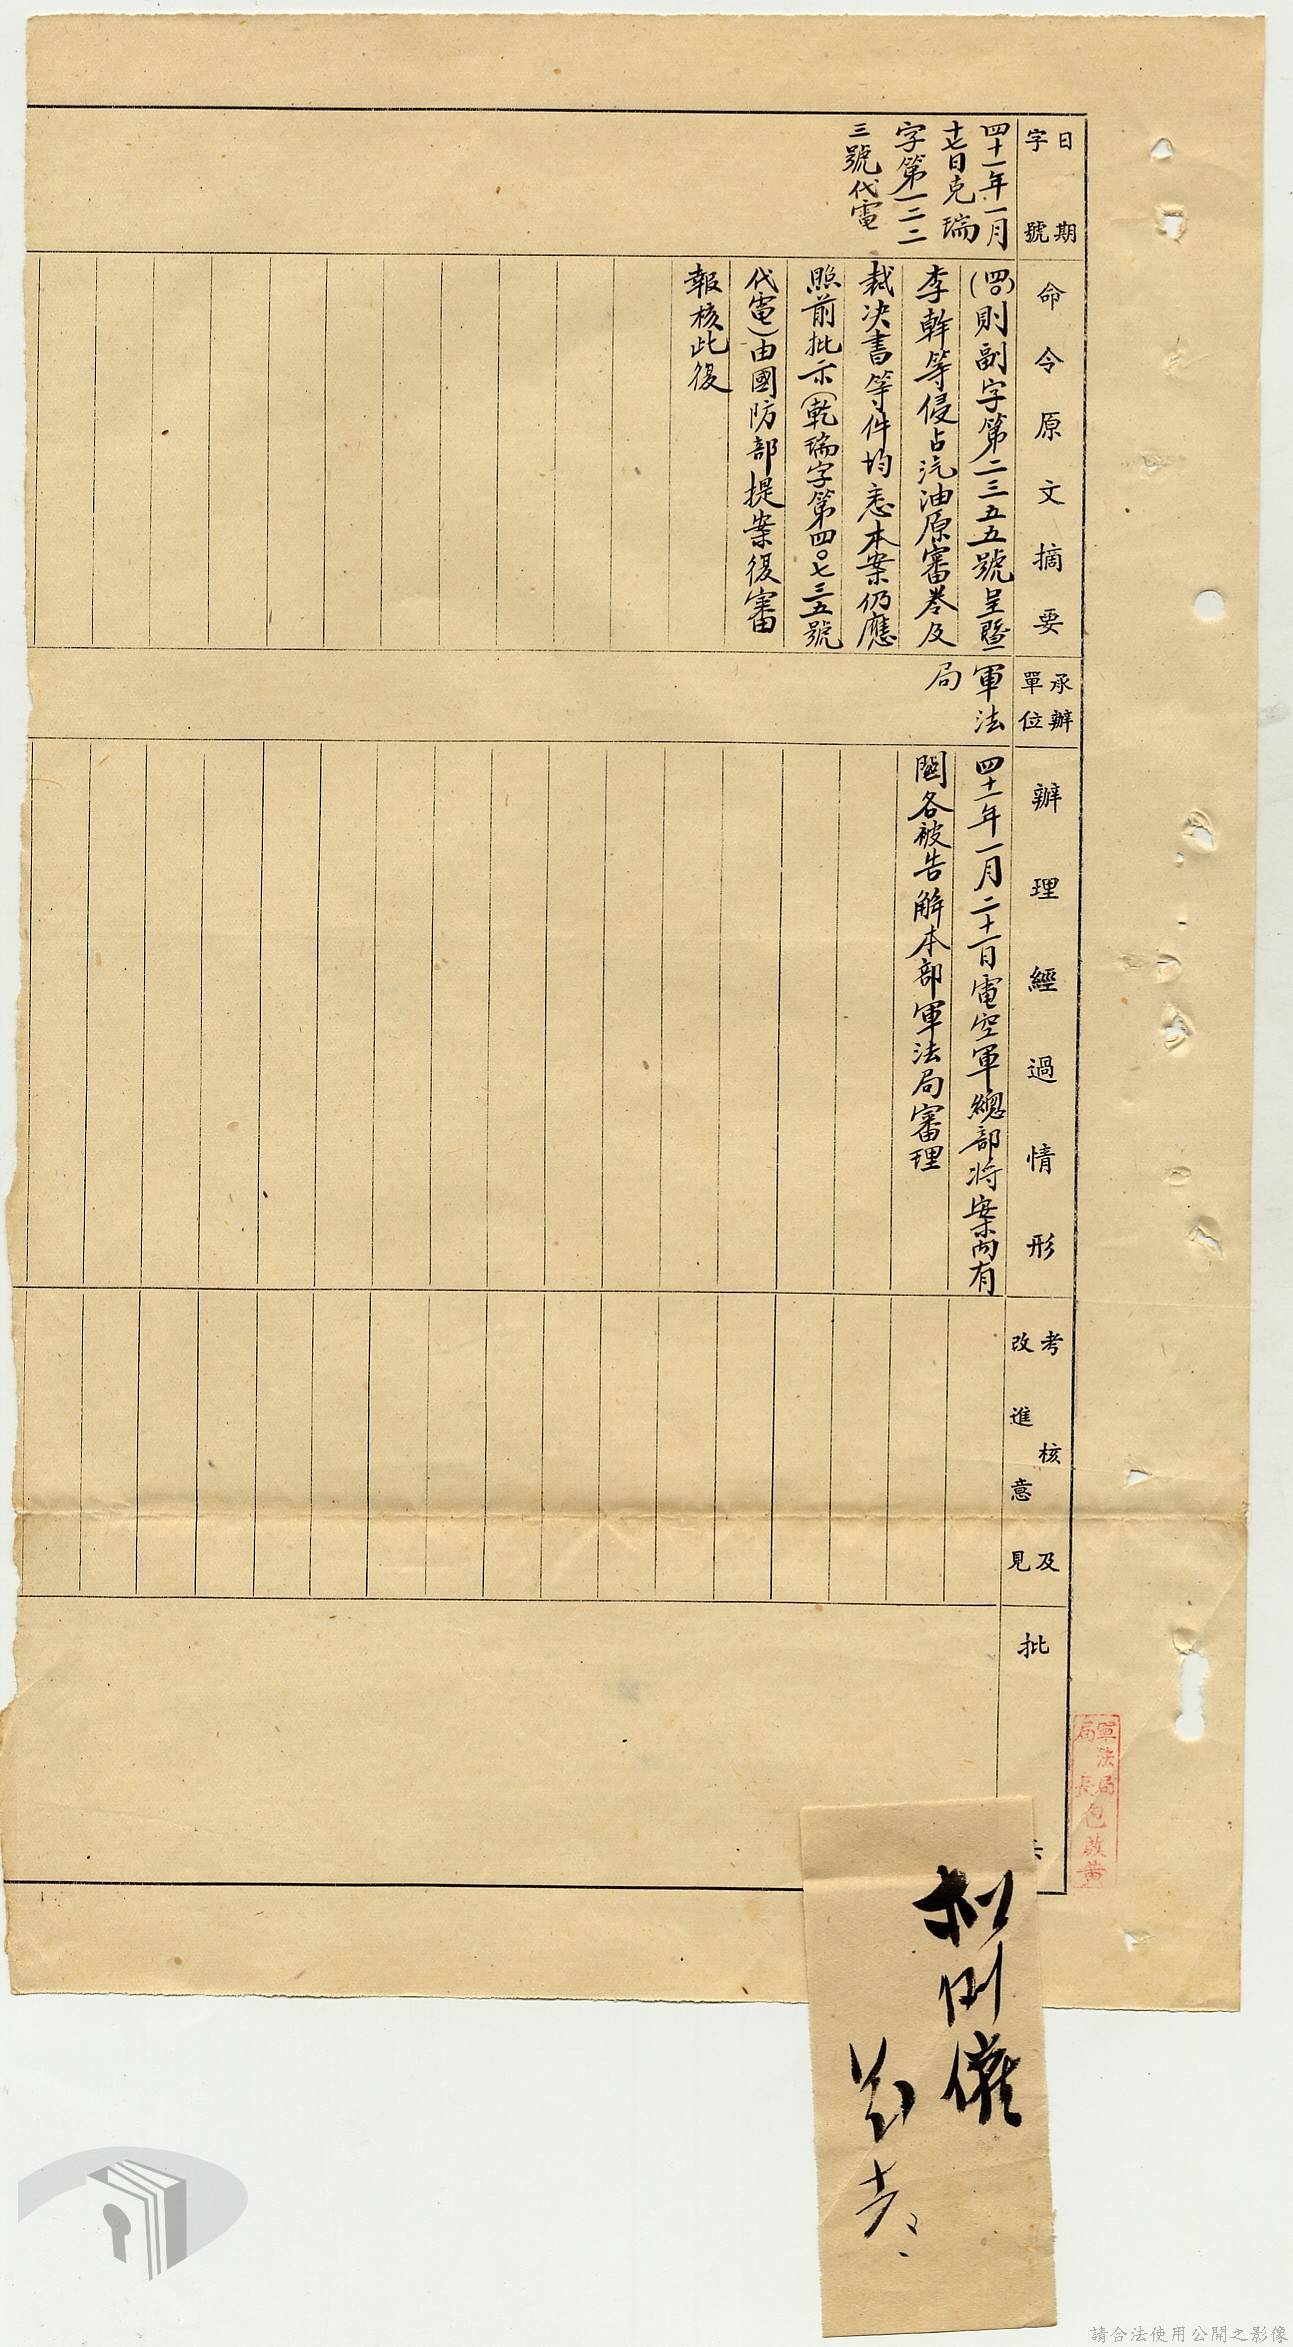 日期
字號
四十一年一月
十七日克瑞
字第一二二
三號代電
命令原文摘要
(四〇)則副字第二三五五號呈暨
李幹等侵占汽油原審卷及
裁決書等件均悉本案仍應
照前批示(乾瑞字第四〇七三五號
代電)由國防部提案復審
報核此復
承辦
單位
軍法
局
辦理經過情形
四十一年一月二十一日電空軍總部將案內有
關各被告解本部軍法局審理
考核及
改進意見
批
軍法局
局長
包啟黃
請合法使用公開之影像